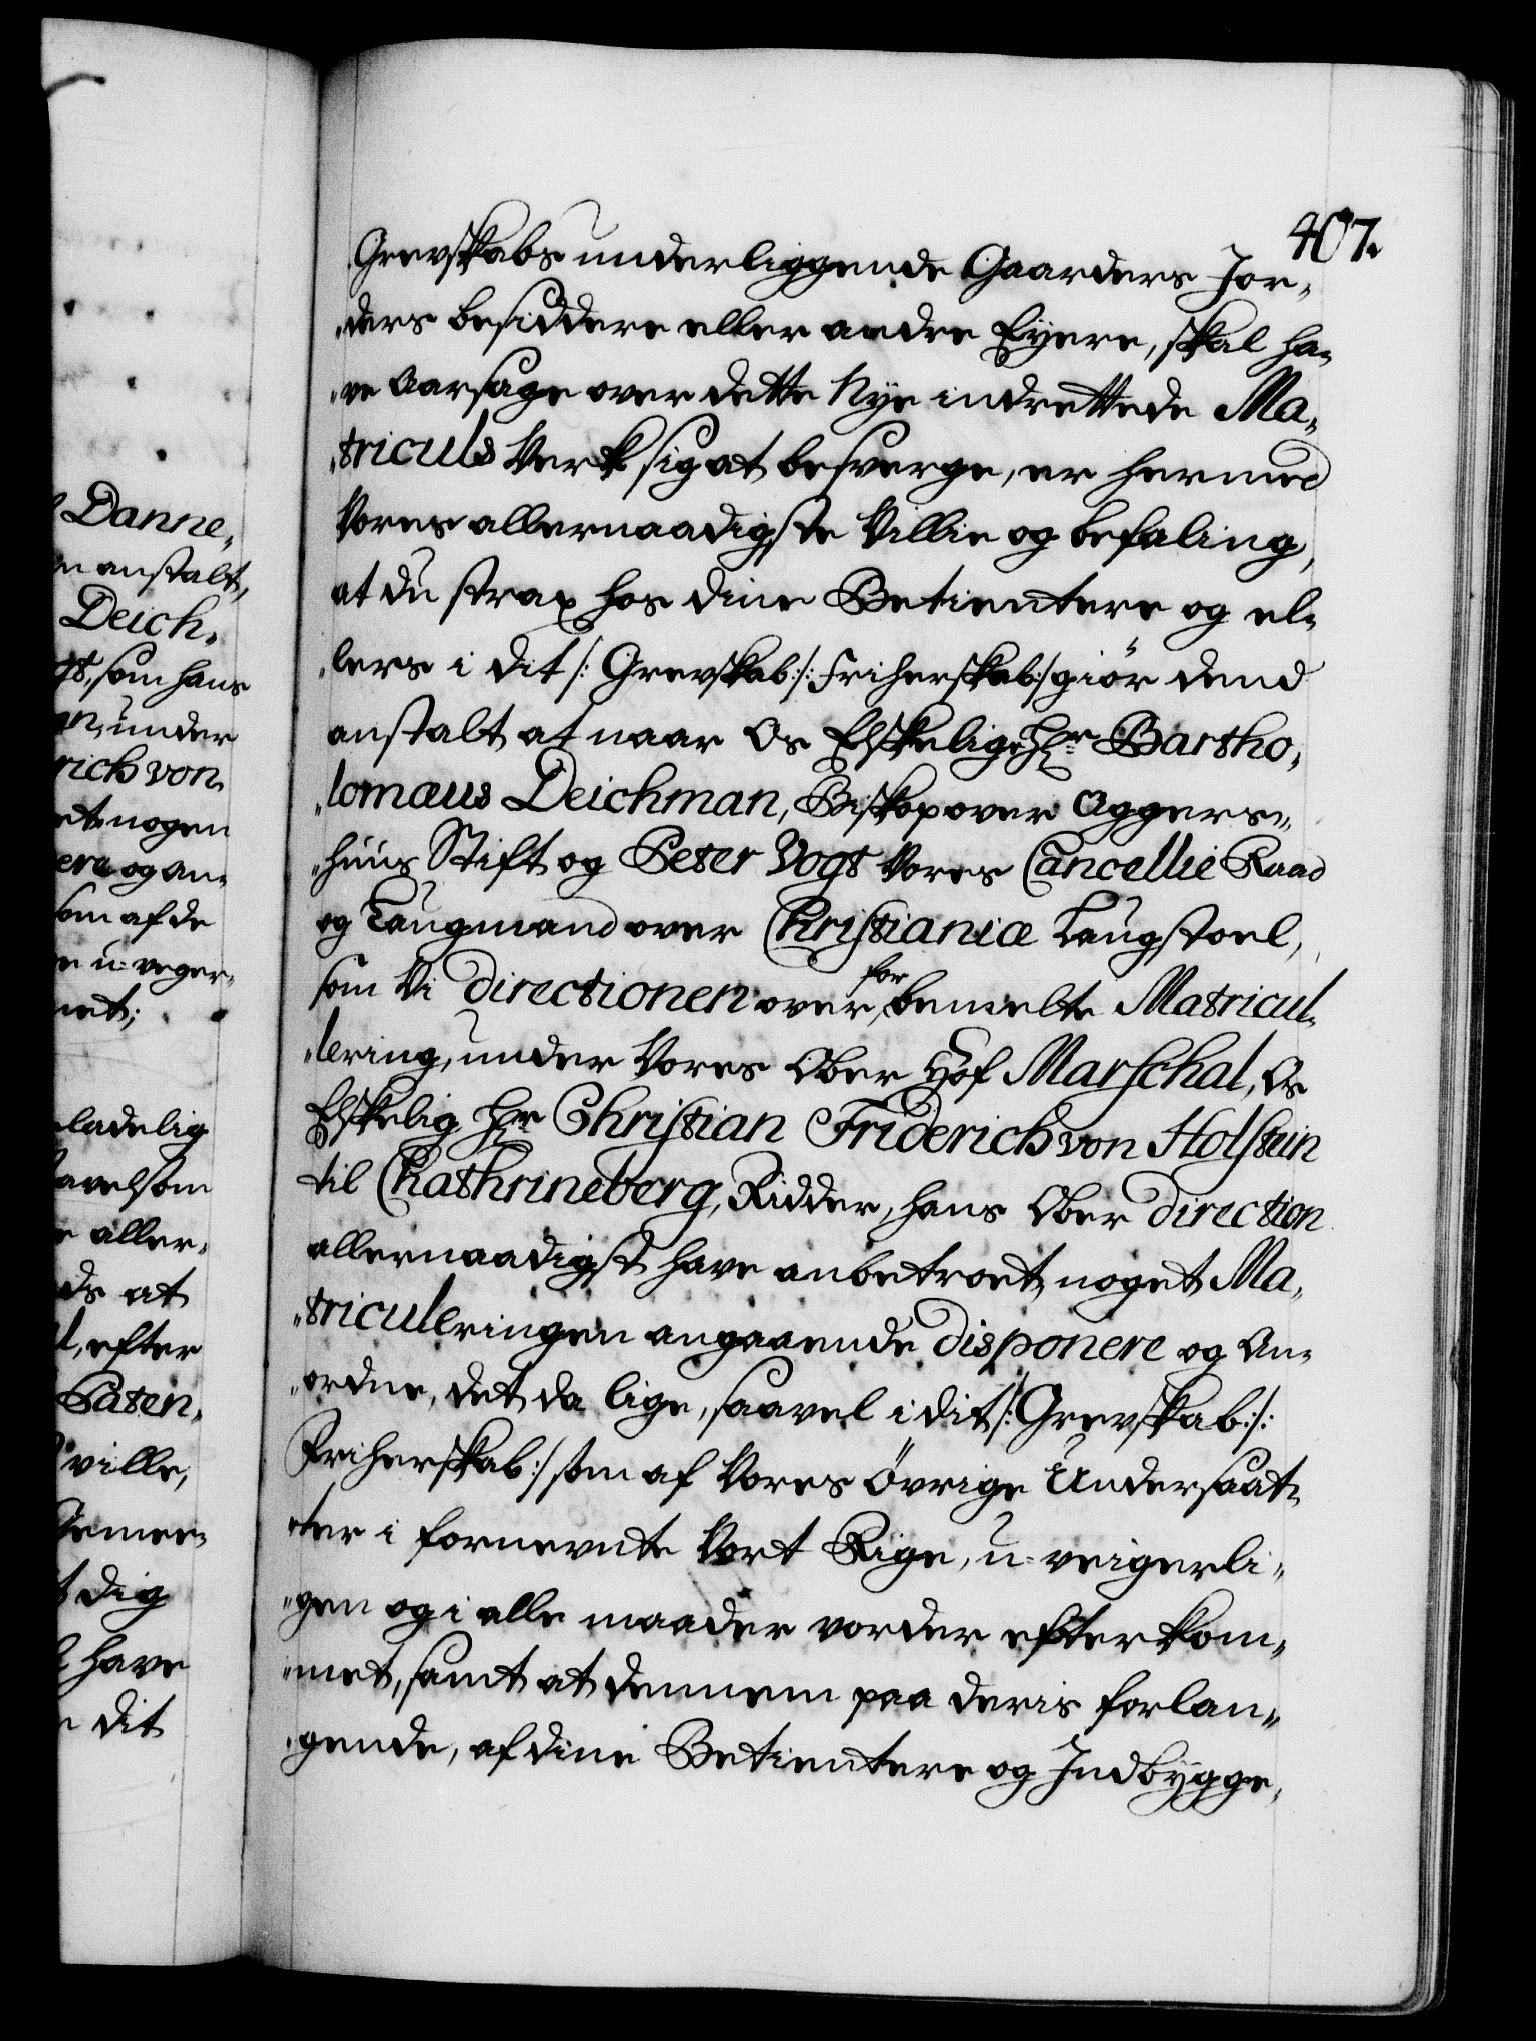 407.
Grevskabs underliggende Gaarders Jor-
-ders besiddere eller andre Eyere, skal ha-
-ve Aarsage over dette Nye indrettede Ma-
-triculs Verk sig at besverge, er hermed
Vores allernaadigste Villie og befaling,
at du strax hos dine Betientere og el-
-lers i dit /: Grevskab :/: Friherskab :/ giör dend
anstalt at naar Os Elskelige Hr Bartho-
-lomæus Deichman, Biskop over Aggers-
-huus Stift og Peter Vogt Vores Cancellie Raad
og Laugmand over Christianiæ Laugstoel,
som Vi Directionen over forbemelte Matricul-
-lering, under Vores Ober Hof Marschal, Os
Elskelig Hr Christian Friderich von Holstein
til Chathrineberg, Ridder, hans Ober Direction
allernaadigst have anbetroet, noget Ma-
-triculeringen angaaende disponere og An-
-ordne, det da lige, saavel i dit /: Grevskab :/:
Friherskab :/ som af Vores övrige Undersaat-
-ter i fornevnte Vort Rige, u-veigerli-
-gen og i alle maader vorder efterkom-
-met, samt at dennem paa deris forlan-
-gende, af dine Betientere og Indbygge-
Danne-
anstalt,
Deich-
som hans
under
rich von
nogen
og an-
som af de
u-veger-
ladelig
aller-
at
efter
Paten-
ville,
dig
have
dit